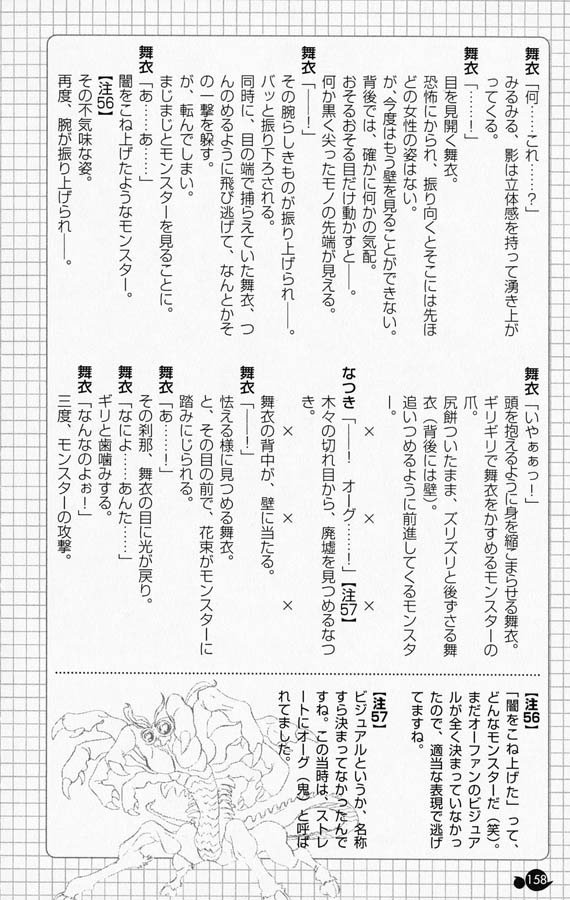 舞衣「何……これ……？」
みるみる、影は立体感を持って湧き上が
ってくる。
舞衣「……！」
目を見開く舞衣。
恐怖にかられ、振り向くとそこには先ほ
どの女性の姿はない。
が、今度はもう壁を見ることができない。
背後では、確かに何かの気配。
おそるおそる目だけ動かすと――。
何か黒く尖ったモノの先端が見える。
舞衣「――！」
その腕らしきものが振り上げられ――。
バッと振り下ろされる。
同時に、目の端で捕らえていた舞衣、つ
んのめるように飛び逃げて、なんとかそ
の一撃を躱す。
が、転んでしまい。
まじまじとモンスターを見ることに。
舞衣「あ……あ……」
闇をこね上げたようなモンスター。
【注56】
その不気味な姿。
再度、腕が振り上げられ――。
舞衣「いやぁぁっ！」
頭を抱えるように身を縮こまらせる舞衣。
ギリギリで舞衣をかすめるモンスターの
爪。
尻餅ついたまま、ズリズリと後ずさる舞
衣（背後には壁）。
追いつめるように前進してくるモンスタ
ー。
× × ×
なつき「――！　オーグ……！」【注57】
木々の切れ目から、廃墟を見つめるなつ
き。
× × ×
舞衣の背中が、壁に当たる。
舞衣「――！」
怯える様に見つめる舞衣。
と、その目の前で、花束がモンスターに
踏みにじられる。
舞衣「あ……！」
その刹那、舞衣の目に光が戻り。
舞衣「なによ……あんた……」
ギリと歯噛みする。
舞衣「なんなのよぉ！」
三度、モンスターの攻撃。
【注56】
「闇をこね上げた」って、
どんなモンスターだ（笑）。
まだオーファンのビジュア
ルが全く決まっていなかっ
たので、適当な表現で逃げ
てますね。
【注57】
ビジュアルというか、名称
すら決まってなかったんで
すね。この当時は、ストレ
ートにオーグ（鬼）と呼ば
れてました。
158